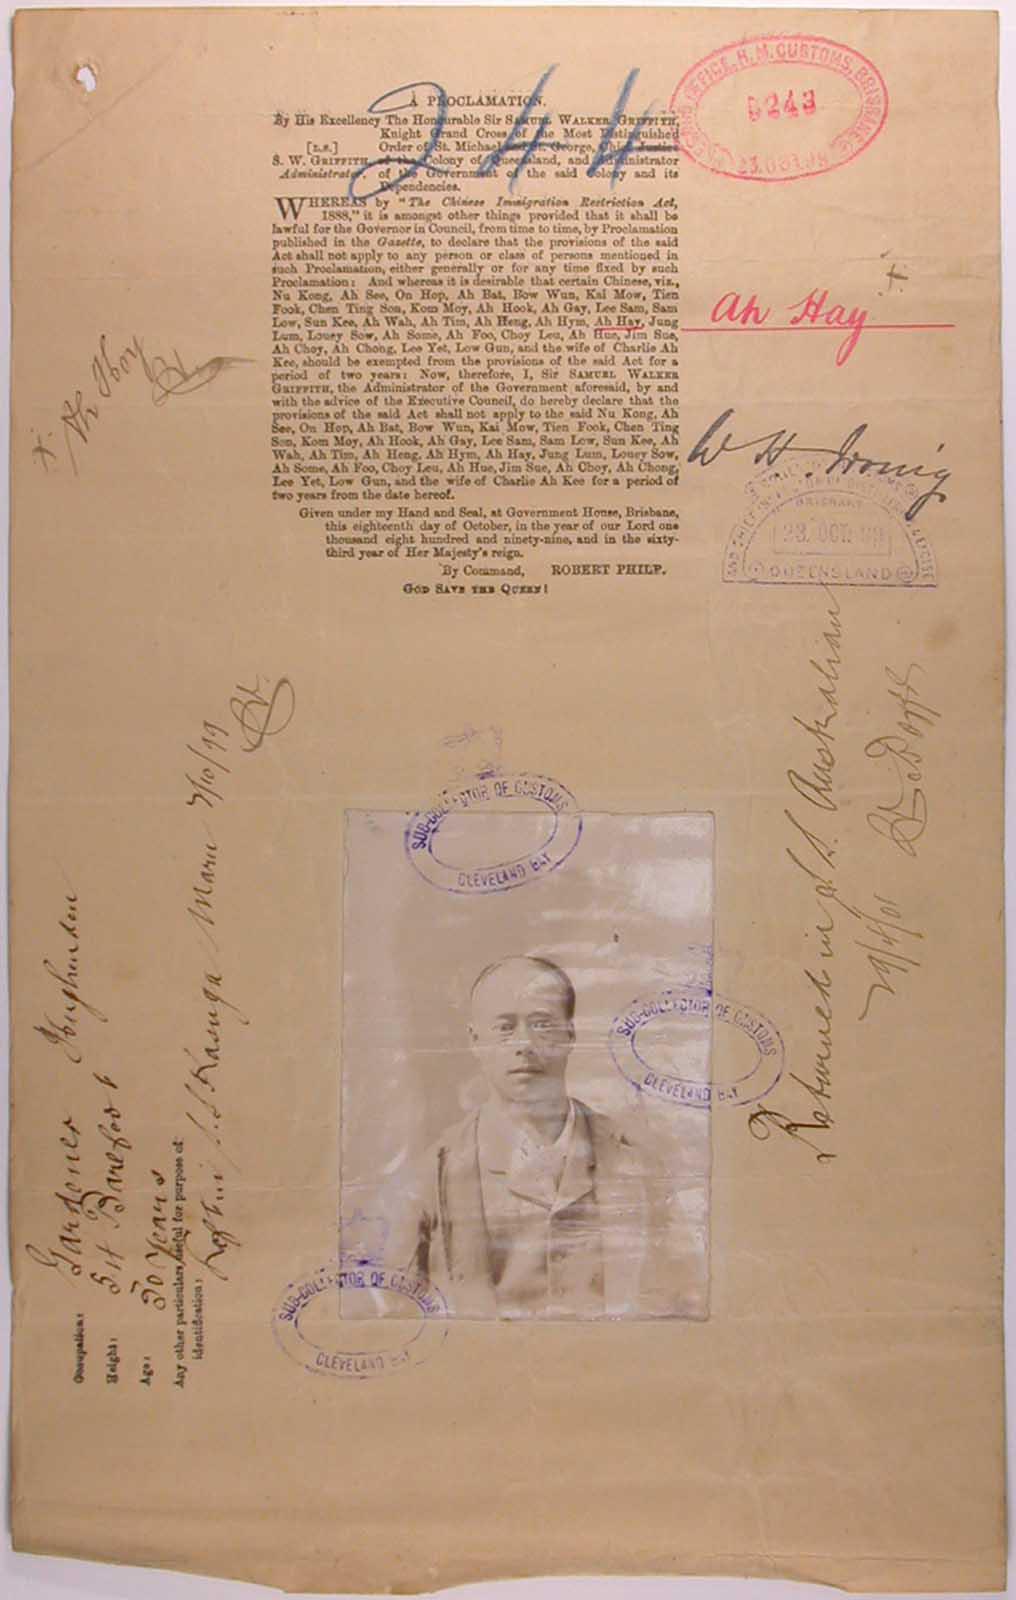 244
A PROCLAMATION.
By His Excellency The Honourable Sir SAMUEL WALKER GRIFFITH,
Knight Grand Cross of the Most Distinguished
[L.S.] Order of St. Michael and St. George, Chief Justice
S. W. GRIFFITH, of the Colony of Queensland, and Administrator
Administrator. of the Government of the said Colony and its
Dependencies.
WHEREAS by "The Chinese Immigration Restriction Act,
1888," it is amongst other things provided that it shall be
lawful for the Governor in Council, from time to time, by Proclamation
published in the Gazette, to declare that the provisions of the said
Act shall not apply to any person or class of persons mentioned in
such Proclamation, either generally or for any time fixed by such
Proclamation: And whereas it is desirable that certain Chinese, viz.,
Nu Kong, Ah See, On Hop, Ah Bat, Bow Wun, Kai Mow, Tien
Fook, Chen Ting Son, Kom Moy, Ah Hook, Ah Gay, Lee Sam, Sam
Low, Sun Kee, Ah Wah, Ah Tim, Ah Heng, Ah Hym, Ah Hay, Jung
Lum, Louey Sow, Ah Some, Ah Foo, Choy Leu, Ah Hue, Jim Sue,
Ah Choy, Ah Chong, Lee Yet, Low Gun, and the wife of Charlie Ah
Kee, should be exempted from the provisions of the said Act for a
period of two years: Now, therefore, I, Sir SAMUEL WALKER
GRIFFITH, the Administrator of the Government aforesaid, by and
with the advice of the Executive Council, do hereby declare that the
provisions of the said Act shall not apply to the said Nu Kong, Ah
See, On Hop, Ah Bat, Bow Wun, Kai Mow, Tien Fook, Chen Ting
Son, Kom Moy, Ah Hook, Ah Gay, Lee Sam, Sam Low, Sun Kee, Ah
Wah, Ah Tim, Ah Heng, Ah Hym, Ah Hay, Jung Lum, Louey Sow,
Ah Some, Ah Foo, Choy Leu, Ah Hue, Jim Sue, Ah Choy, Ah Chong,
Lee Yet, Low Gun, and the wife of Charlie Ah Kee for a period of
two years from the date hereof.
Given under my Hand and Seal, at Government House, Brisbane,
this eighteenth day of October, in the year of our Lord one
thousand eight hundred and ninety-nine, and in the sixty-
third year of Her Majesty's reign.
By Command, ROBERT PHILP.
GOD SAVE THE QUEEN!
OFFICE, H.M. CUSTOMS, BRISBANE
9243
23 OCT
Ah Hay
W H Irving
BRISBANE
23 OCT 99
QUEENSLAND
Ah Hay
Occupation: Gardener Hughenden
Height: 5 ft Barefoot
Age: 30 Years
Any other particulars useful for purpose of
identification:
Left in S.S Kasuga Maru 7/10/99
Returned in S.S. Australian
29/4/01
SUB-COLLECTOR OF CUSTOMS
CLEVELAND BAY
SUB-COLLECTOR OF CUSTOMS
CLEVELAND BAY
SUB-COLLECTOR OF CUSTOMS
CLEVELAND BAY